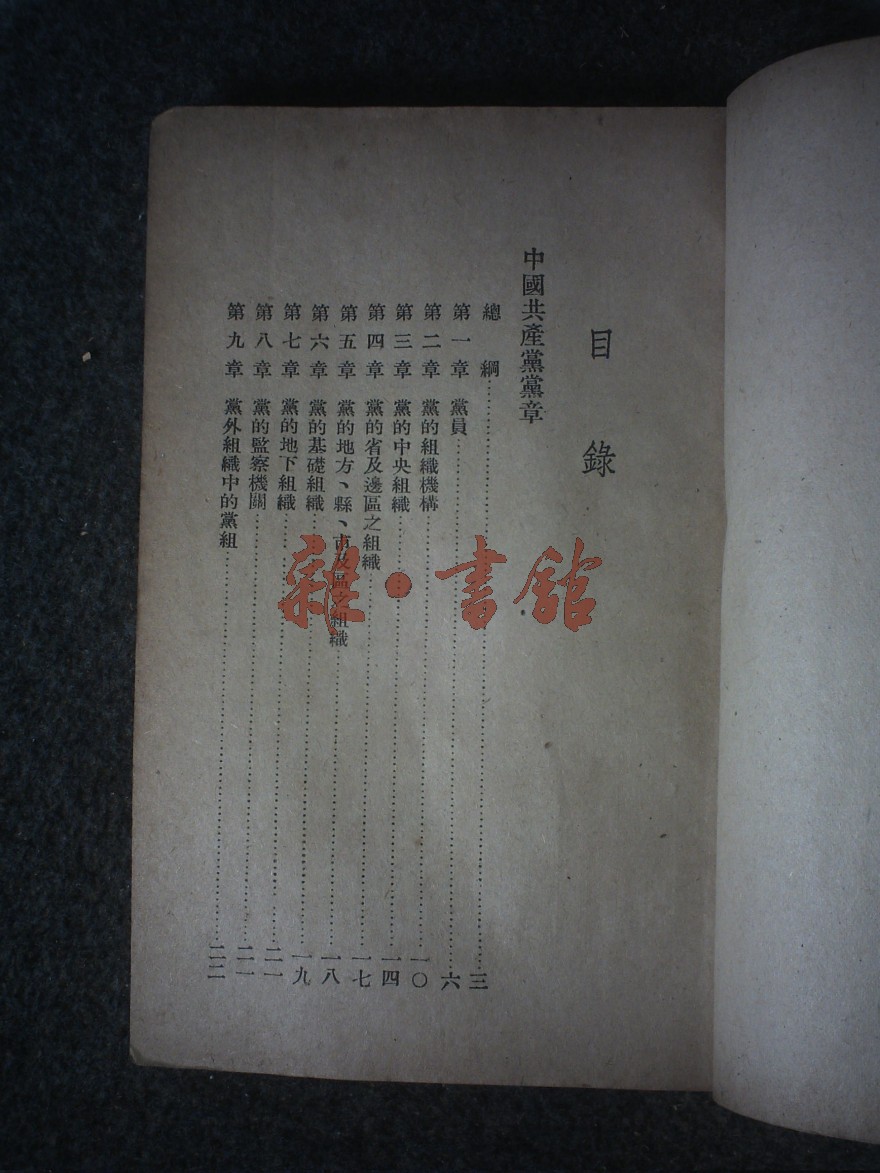 目錄
中國共產黨黨章
總綱……三
第一章 黨員……六
第二章 黨的組織機構……一〇
第三章 黨的中央組織……一四
第四章 黨的省及邊區之組織……一七
第五章 黨的地方、縣、市及區之組織……一八
第六章 黨的基礎組織……一九
第七章 黨的地下組織……二一
第八章 黨的監察機關……二一
第九章 黨外組織中的黨組……二二
雜·書館